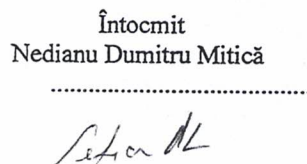 Întocmit
Nedianu Dumitru Mitică
..........................................